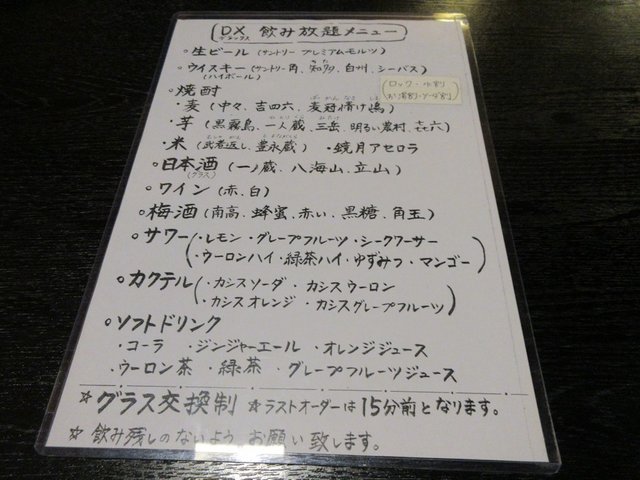 DX 飲み放題メニュー
デラックス
○生ビール (サントリー プレミアムモルツ)
○ウイスキー (サントリー角、知多、白州、シーバス)
(ハイボール)
ロック・水割
お湯割・ソーダ割
○焼酎
・麦 (中々、吉四六、麦冠情け嶋)
・芋 (黒霧島、一人蔵、三岳、明るい農村、㐂六)
・米 (武者返し、豊永蔵) ・鏡月アセロラ
○日本酒 (一ノ蔵、八海山、立山)
(グラス)
○ワイン (赤、白)
○梅酒 (南高、蜂蜜、赤い、黒糖、角玉)
○サワー (・レモン ・グレープフルーツ ・シークワーサー
・ウーロンハイ ・緑茶ハイ ・ゆずみつ ・マンゴー)
○カクテル (・カシスソーダ ・カシスウーロン
・カシスオレンジ ・カシスグレープフルーツ)
○ソフトドリンク
・コーラ ・ジンジャーエール ・オレンジジュース
・ウーロン茶 ・緑茶 ・グレープフルーツジュース
☆グラス交換制 ☆ラストオーダーは15分前となります。
☆飲み残しのないよう、お願い致します。